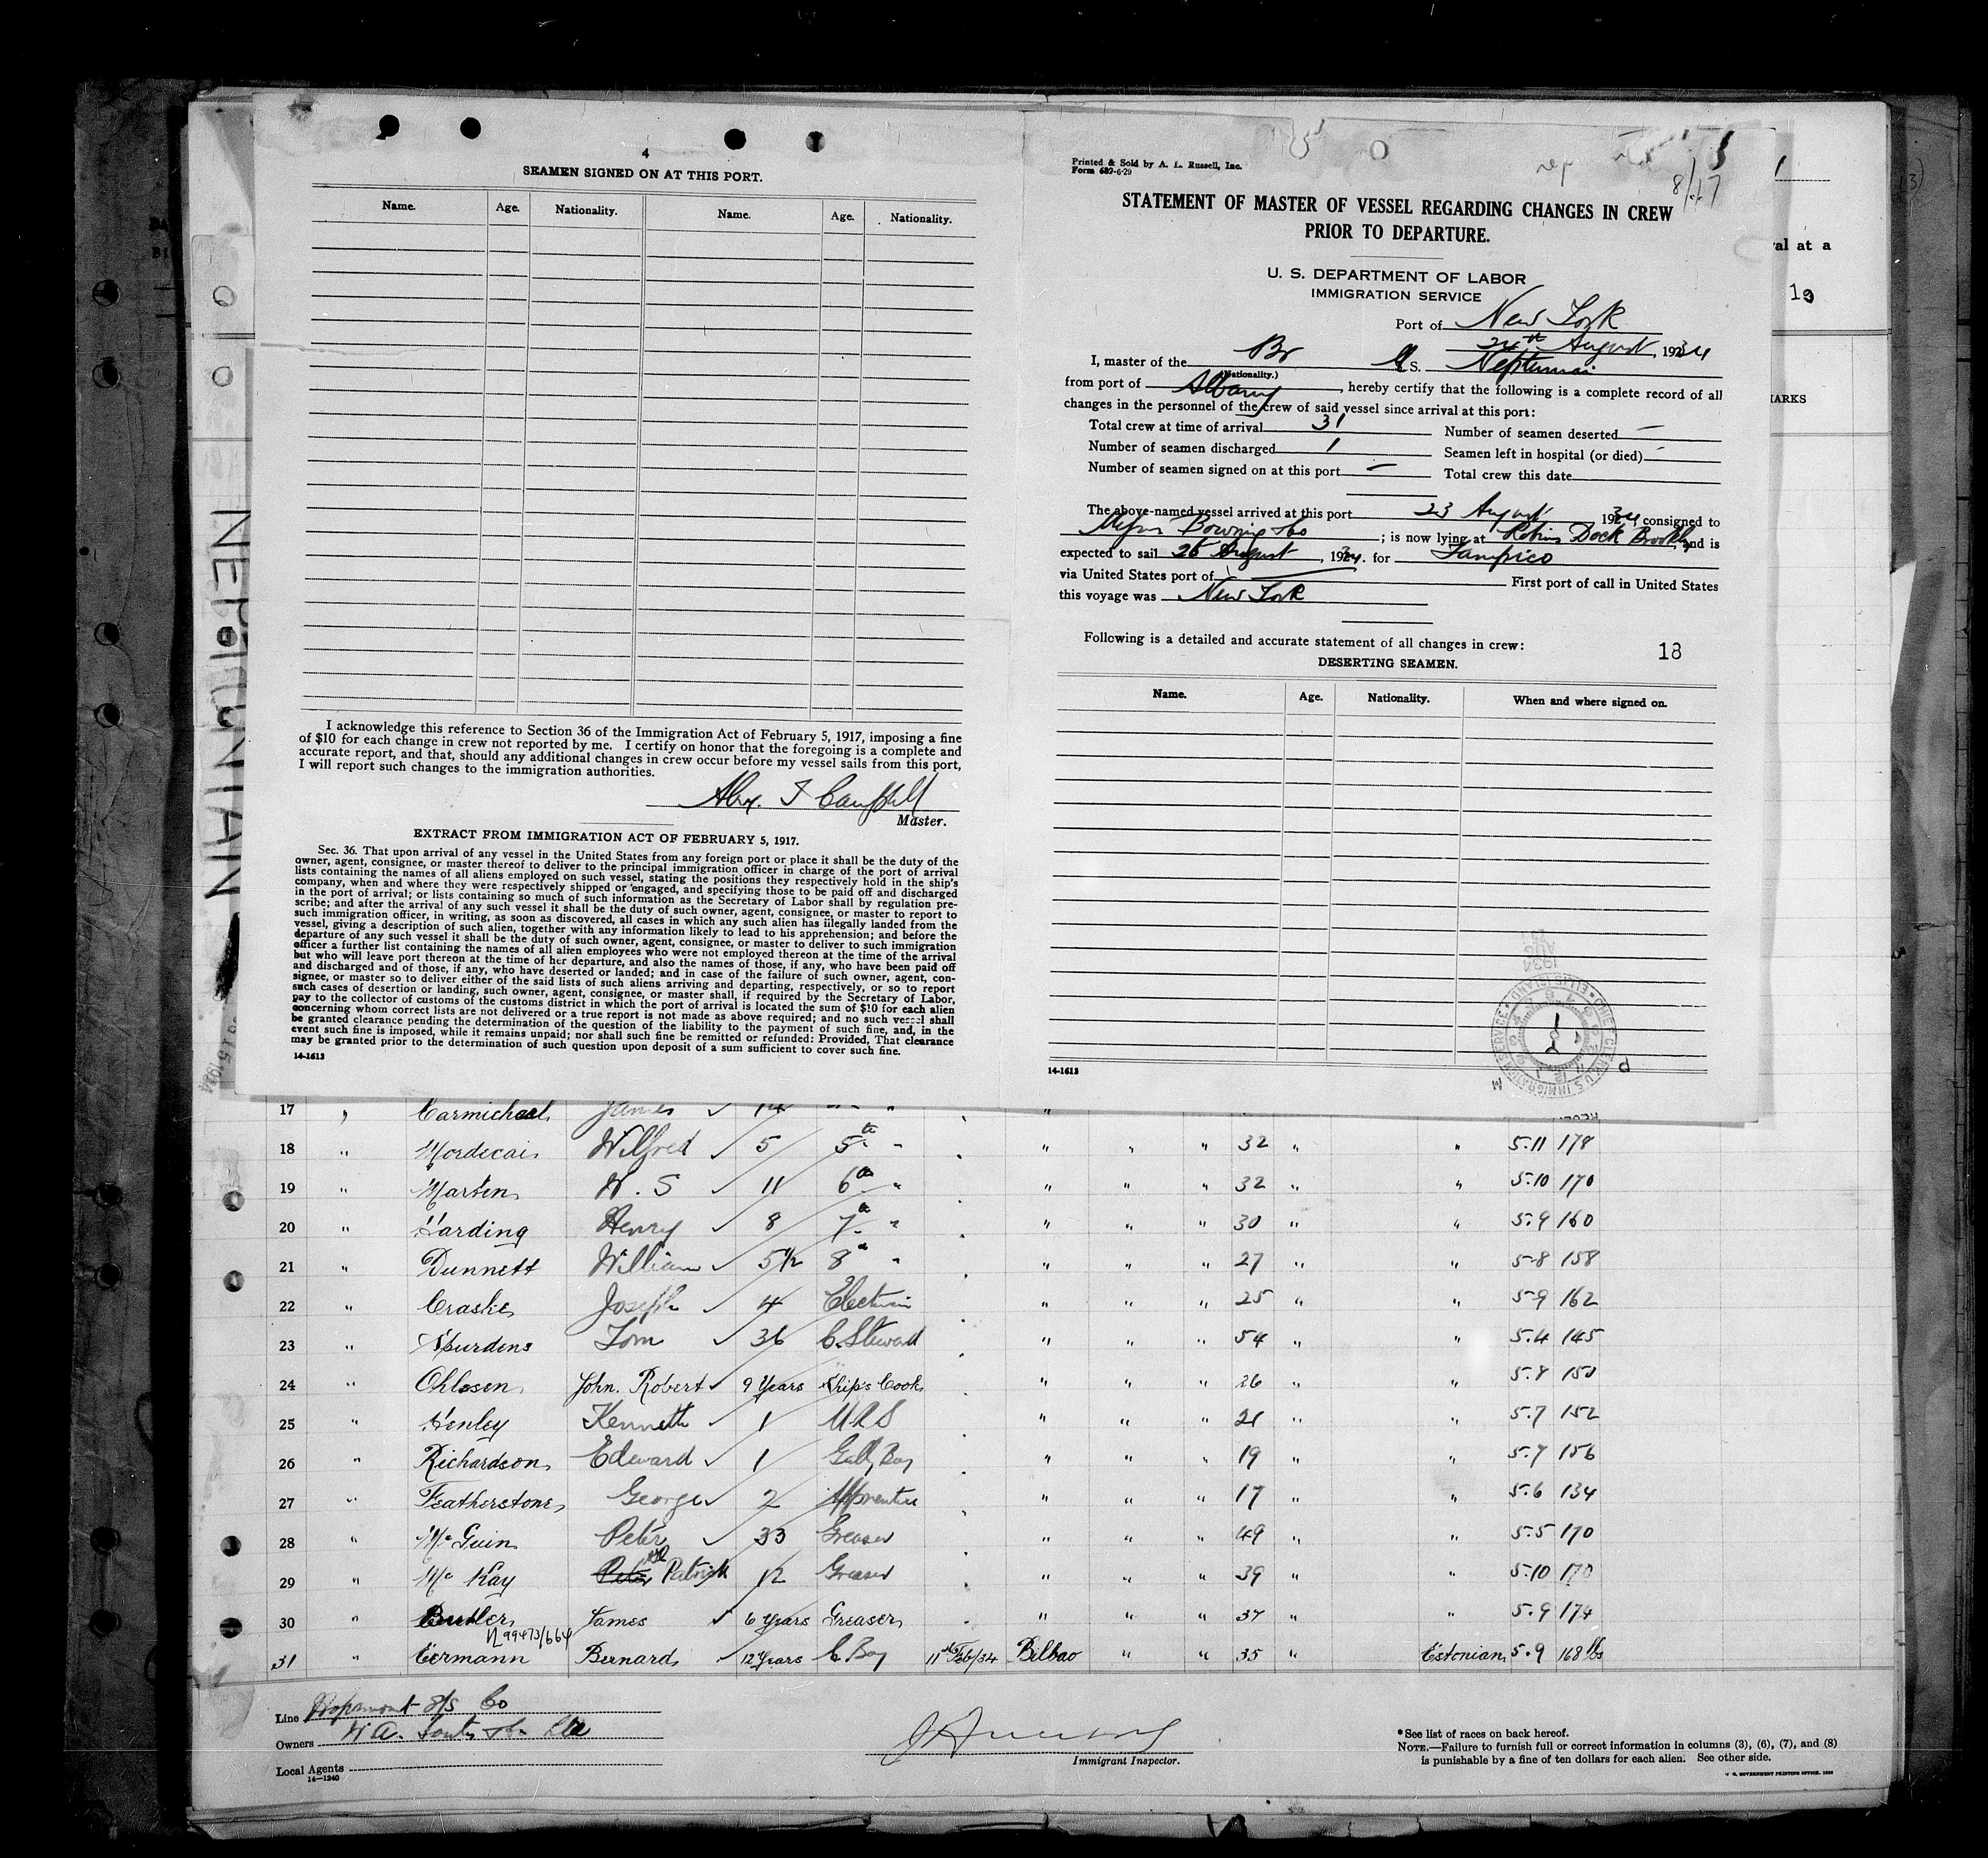 4
SEAMEN SIGNED ON AT THIS PORT.
Name. Age. Nationality. Name. Age. Nationality.
I acknowledge this reference to Section 36 of the Immigration Act of February 5, 1917, imposing a fine
of $10 for each change in crew not reported by me. I certify on honor that the foregoing is a complete and
accurate report, and that, should any additional changes in crew occur before my vessel sails from this port,
I will report such changes to the immigration authorities.
Alex. J Campbell
Master.
EXTRACT FROM IMMIGRATION ACT OF FEBRUARY 5, 1917.
Sec. 36. That upon arrival of any vessel in the United States from any foreign port or place it shall be the duty of the
owner, agent, consignee, or master thereof to deliver to the principal immigration officer in charge of the port of arrival
lists containing the names of all aliens employed on such vessel, stating the positions they respectively hold in the ship's
company, when and where they were respectively shipped or engaged, and specifying those to be paid off and discharged
in the port of arrival; or lists containing so much of such information as the Secretary of Labor shall by regulation pre-
scribe; and after the arrival of any such vessel it shall be the duty of such owner, agent, consignee, or master to report to
such immigration officer, in writing, as soon as discovered, all cases in which any such alien has illegally landed from the
vessel, giving a description of such alien, together with any information likely to lead to his apprehension; and before the
departure of any such vessel it shall be the duty of such owner, agent, consignee, or master to deliver to such immigration
officer a further list containing the names of all alien employees who were not employed thereon at the time of the arrival
but who will leave port thereon at the time of her departure, and also the names of those, if any, who have been paid off
and discharged and of those, if any, who have deserted or landed; and in case of the failure of such owner, agent, con-
signee, or master so to deliver either of the said lists of such aliens arriving and departing, respectively, or so to report
such cases of desertion or landing, such owner, agent, consignee, or master shall, if required by the Secretary of Labor,
pay to the collector of customs of the customs district in which the port of arrival is located the sum of $10 for each alien
concerning whom correct lists are not delivered or a true report is not made as above required; and no such vessel shall
be granted clearance pending the determination of the question of the liability to the payment of such fine, and, in the
event such fine is imposed, while it remains unpaid; nor shall such fine be remitted or refunded: Provided, That clearance
may be granted prior to the determination of such question upon deposit of a sum sufficient to cover such fine.
14-1613
Printed & Sold by A. L. Russell, Inc.
Form 689-6-29
8/17
STATEMENT OF MASTER OF VESSEL REGARDING CHANGES IN CREW
PRIOR TO DEPARTURE.
U. S. DEPARTMENT OF LABOR
IMMIGRATION SERVICE
Port of New York
24th August, 1934
I, master of the Br S. Neptunian
(Nationality.)
from port of Albany, hereby certify that the following is a complete record of all
changes in the personnel of the crew of said vessel since arrival at this port:
Total crew at time of arrival 31 Number of seamen deserted —
Number of seamen discharged 1 Seamen left in hospital (or died) —
Number of seamen signed on at this port — Total crew this date
The above-named vessel arrived at this port 23 August 1934, consigned to
Messrs Bowring & Co; is now lying at Robins Dock Brooklyn, and is
expected to sail 25 August, 1934. for Tampico
via United States port of — First port of call in United States
this voyage was New York
Following is a detailed and accurate statement of all changes in crew:
18
DESERTING SEAMEN.
Name. Age. Nationality. When and where signed on.
14-1613
CHIEF CLERK U.S. IMMIGRATION SERVICE • ELLIS ISLAND
AUG 1934
val at a
10
MARKS
NEPTUNIAN
17 " Carmichael James ✓ 14
18 " Mordecai Wilfred ✓ 5 5th " " " " 32 " " 5.11 178
19 " Marten W. S ✓ 11 6th " " " " 32 " " 5.10 170
20 " Harding Henry ✓ 8 7th " " " " 30 " " 5.9 160
21 " Dunnett William ✓ 5½ 8th " " " " 27 " " 5-8 158
22 " Craske Joseph ✓ 4 Electrician " " " 25 " " 5-9 162
23 " Spurdens Tom ✓ 36 C. Steward " " " 54 " " 5.4 145
24 " Ohlosen John. Robert ✓ 9 Years Ship's Cook " " " 26 " " 5.8 150
25 " Henley Kenneth ✓ 1 M R S " " " 21 " " 5.7 152
26 " Richardson Edward ✓ 1 Gally Boy " " " 19 " " 5.7 156
27 " Featherstone George ✓ 2 Apprentice " " " 17 " " 5.6 134
28 " Mc Guin Peter ✓ 33 Greaser " " " 49 " " 5.5 170
29 " Mc Kay Peter Patrick 12 Greaser " " " 39 " " 5.10 170
30 " Butler James ✓ 6 Years Greaser " " " 37 " " 5.9 174
99473/664
31 " Eermann Bernard ✓ 12 Years C. Boy 11th Feb/34 Bilbao " " 35 " Estonian 5.9 168 lbs
Line Hopemount S/S Co
Owners W. A. Souter & Co Ltd
Local Agents
14—1240
Immigrant Inspector.
*See list of races on back hereof.
NOTE.—Failure to furnish full or correct information in columns (3), (6), (7), and (8)
is punishable by a fine of ten dollars for each alien. See other side.
U. S. GOVERNMENT PRINTING OFFICE. 1930